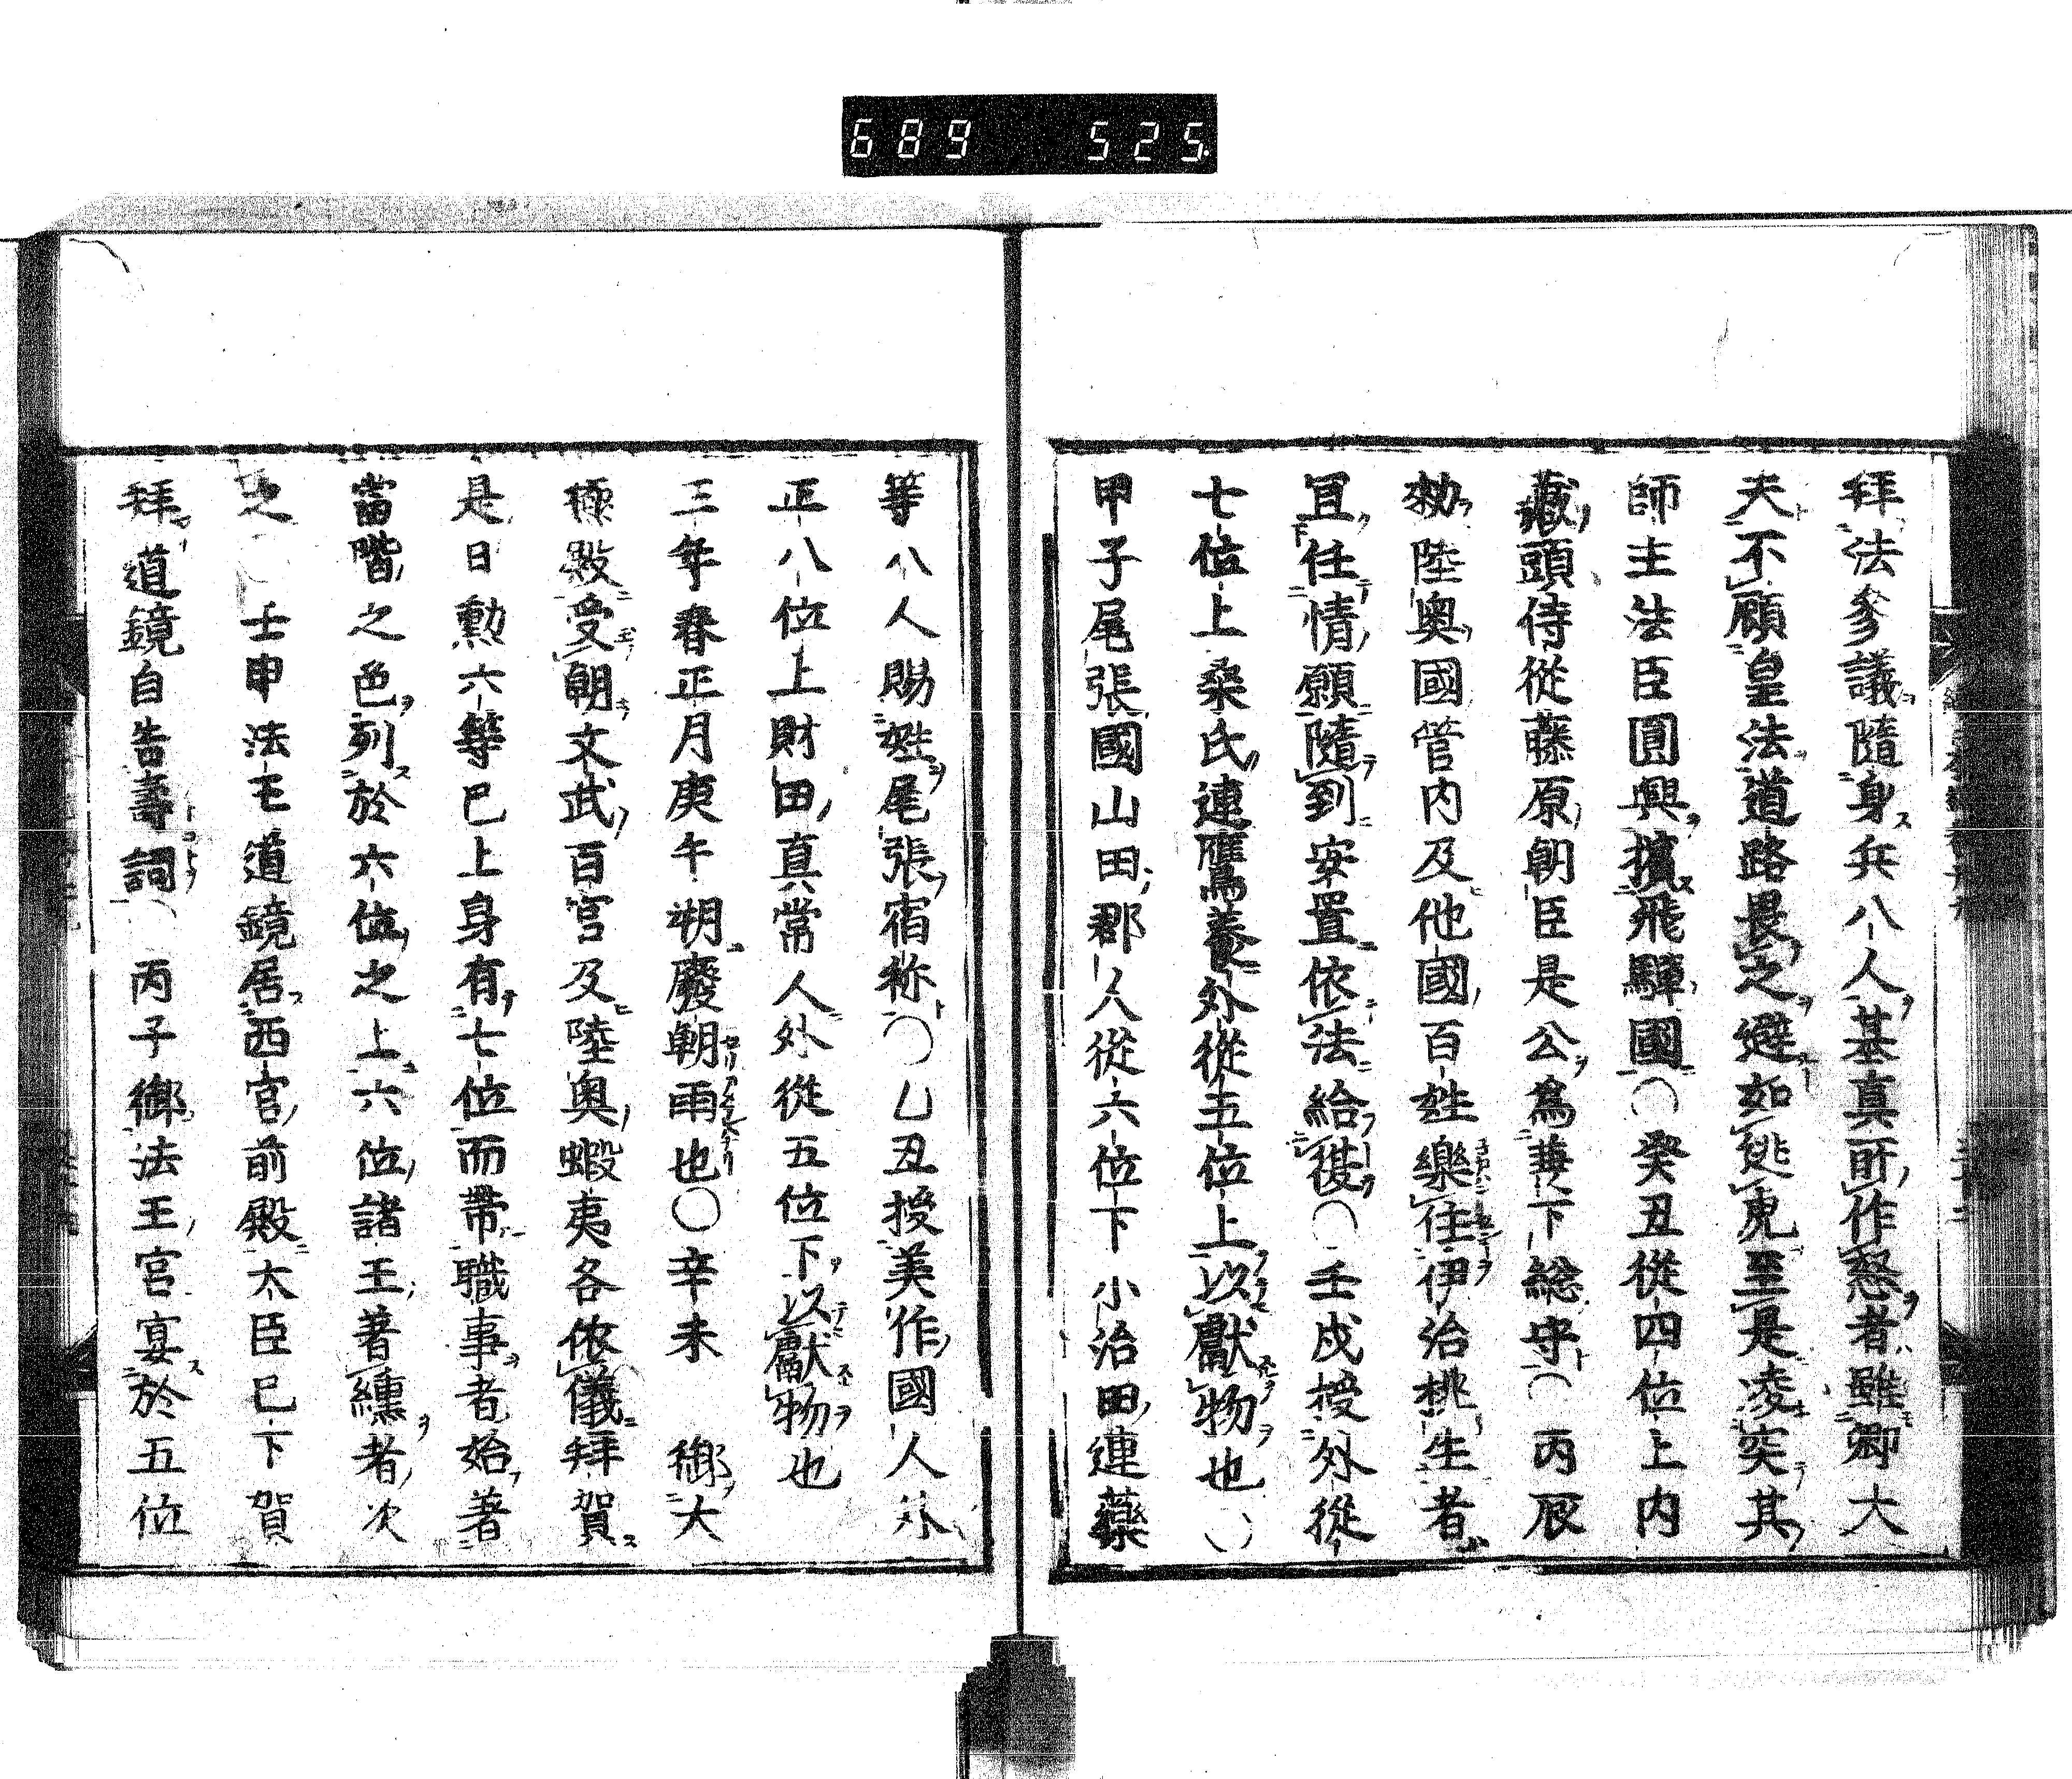 689 525
拜法參議隨身兵八人基真所作怒者雖卿大
夫不顧皇法道路畏之避如逃兎至是凌突其
師主法臣圓興擯飛驒國○癸丑從四位上内
藏頭侍從藤原朝臣是公爲兼下総守○丙辰
勑陸奥國管内及他國百姓樂住伊治桃生者
冝任情願隨到安置依法給復○壬戌授外從
七位上桑氏連鷹養外從五位上以獻物也○
甲子尾張國山田郡人從六位下小治田連藥
等八人賜姓尾張宿祢○乙丑授美作國人外
正八位上財田真常人外從五位下以獻物也
三年春正月庚午朔廢朝雨也○辛未御大
極殿受朝文武百官及陸奥蝦夷各依儀拜賀
是日勲六等已上身有七位而帶職事者始著
當階之色列於六位之上六位諸王著纁者次
之○壬申法王道鏡居西宮前殿大臣已下賀
拜道鏡自告壽詞○丙子御法王宮宴於五位